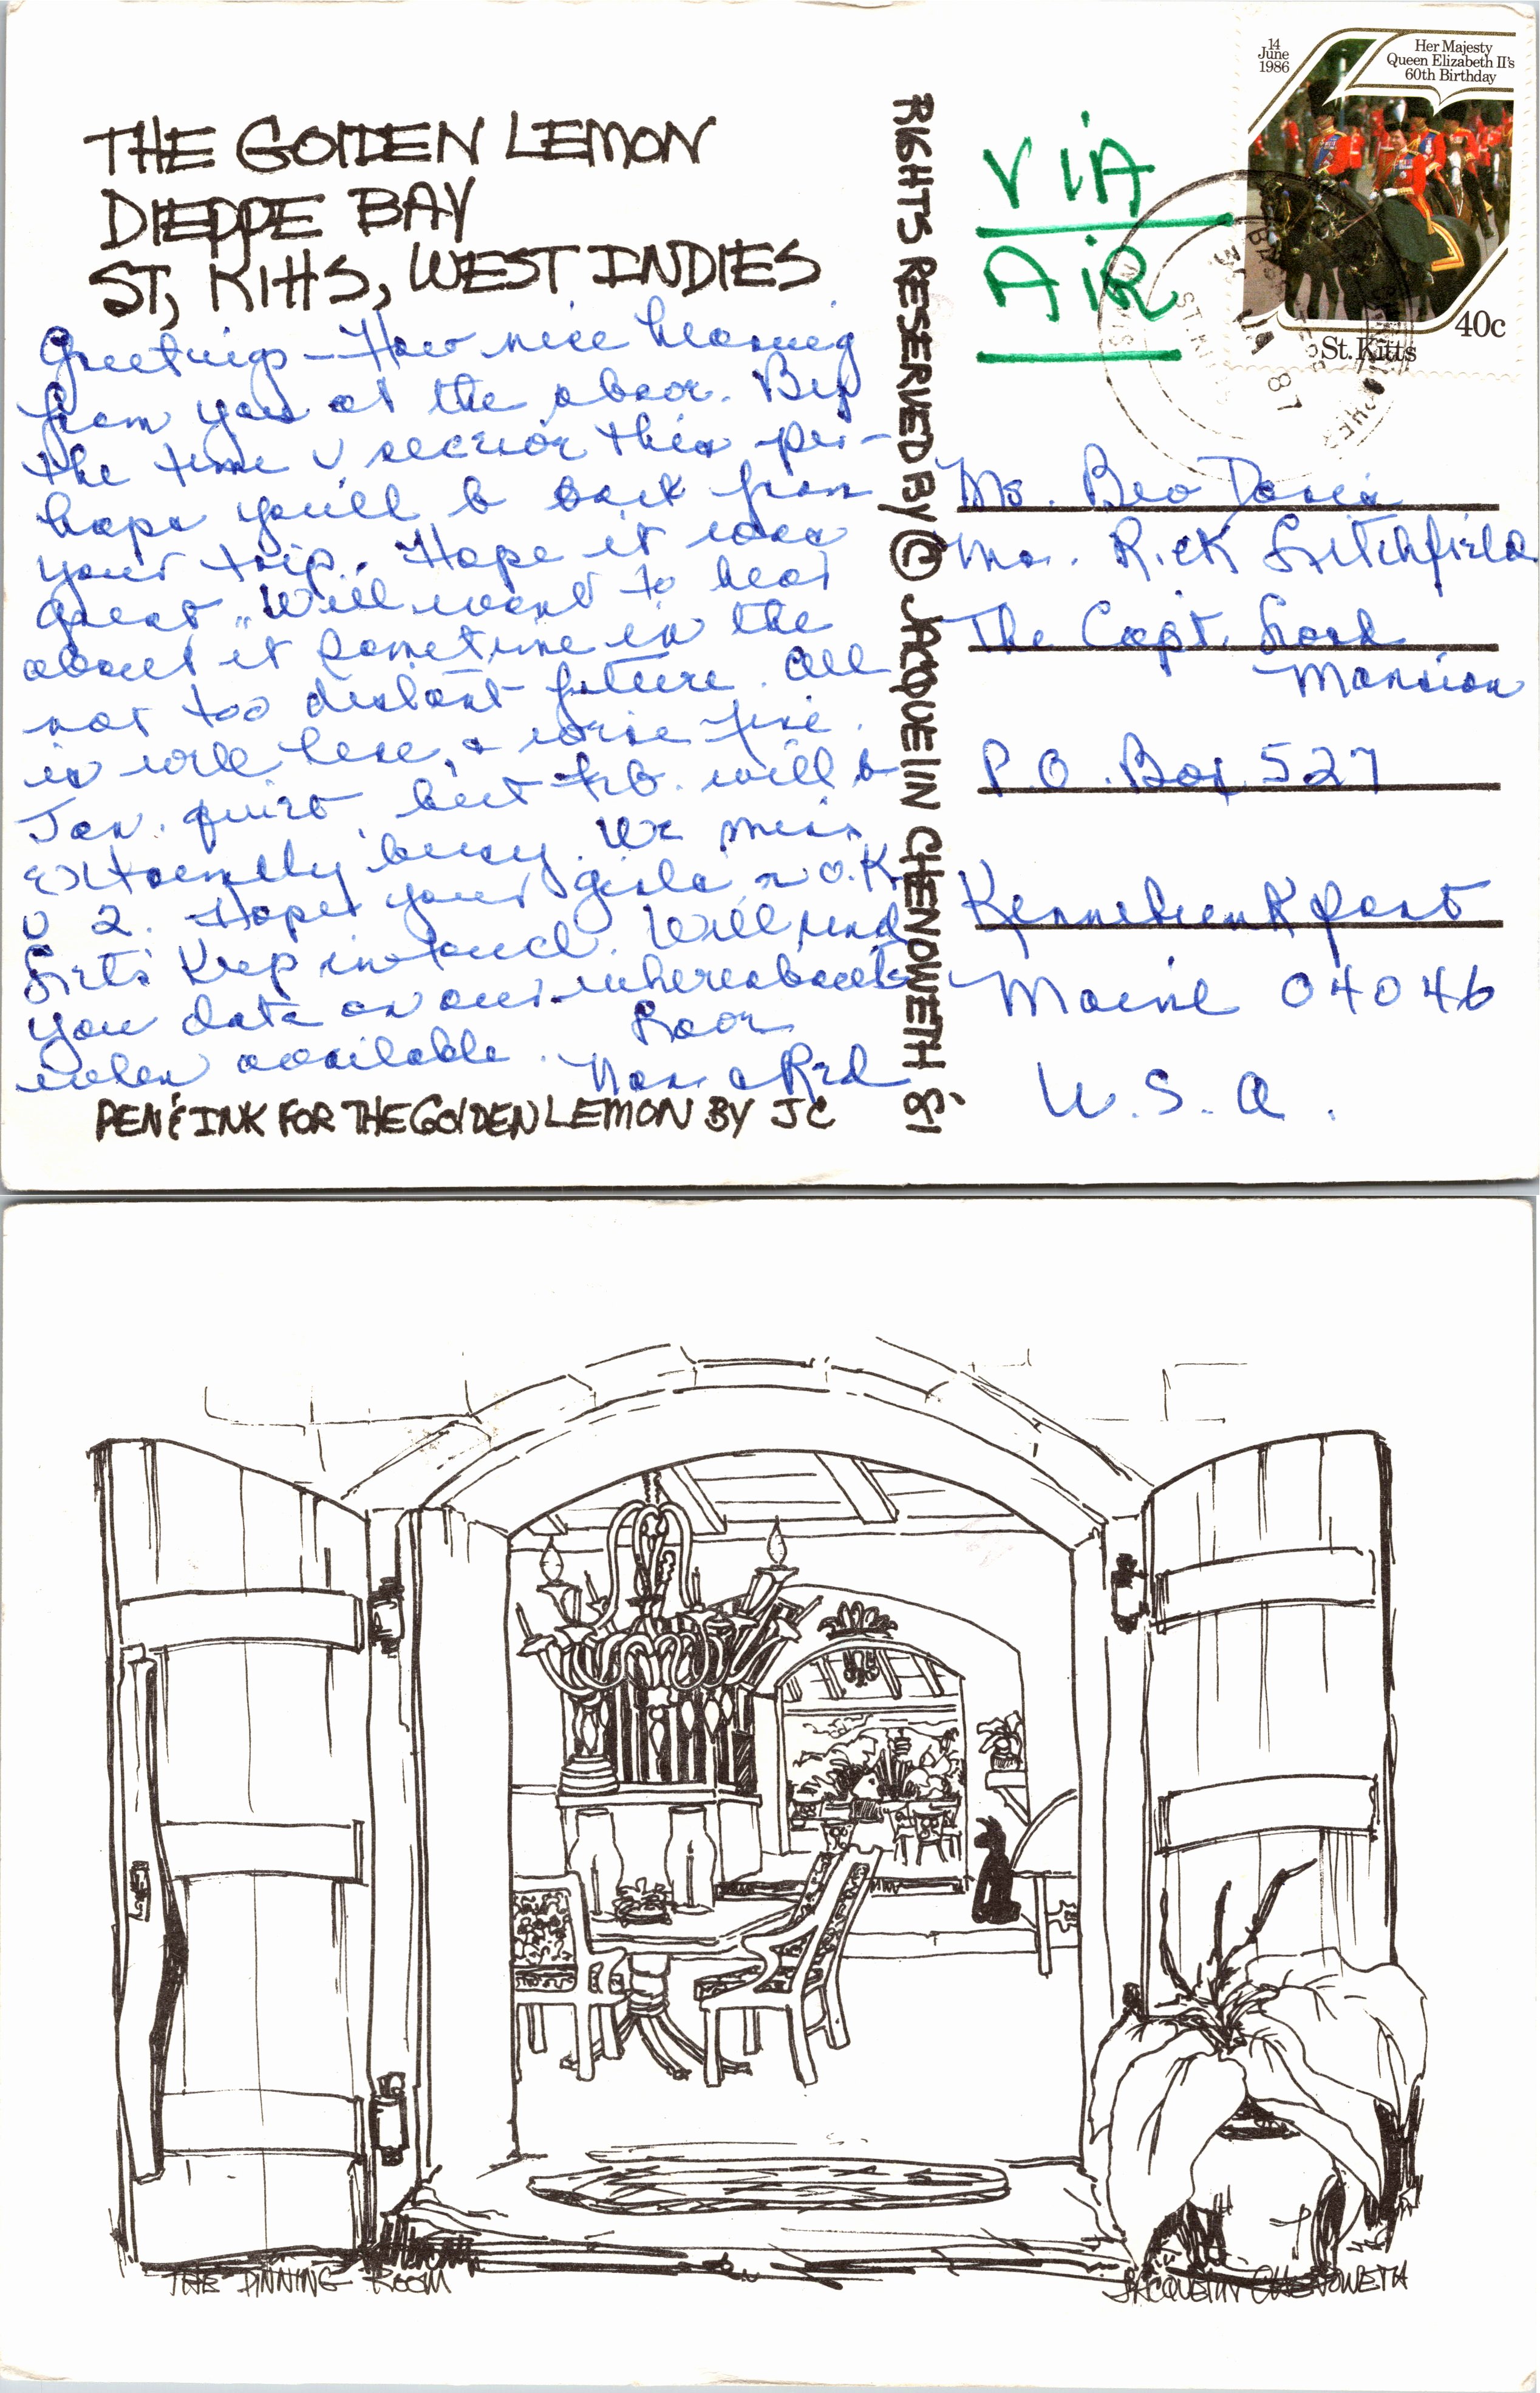 THE GOLDEN LEMON
DIEPPE BAY
ST, KITTS, WEST INDIES
Greetings - How nice hearing
from you at the door. By
the time U receive this per-
haps you'll b back from
your trip. Hope it was
great. Will want to hear
about it sometime in the
not too distant future. All
is well here, & we're fine.
Jan. quiet but Feb. will b
extremely busy. We miss
U 2. Hope your girls r O.K.
Let's keep in touch. Will send
you data on our whereabouts
when available.
Nan & Red
PEN & INK FOR THE GOLDEN LEMON BY JC
RIGHTS RESERVED BY © JACQUELIN CHENOWETH 81
VIA
AIR
14
June
1986
Her Majesty
Queen Elizabeth II's
60th Birthday
40c
St. Kitts
JA 87
Ms. Bev Davis
Mr. Rick Litchfield
The Capt. Lord
Mansion
P.O. Box 527
Kennebunkport
Maine 04046
U.S.A.
THE DINNING ROOM
JACQUELIN CHENOWETH